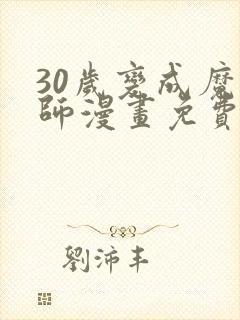 30歲變成魔
師漫畫免費
劉沛丰